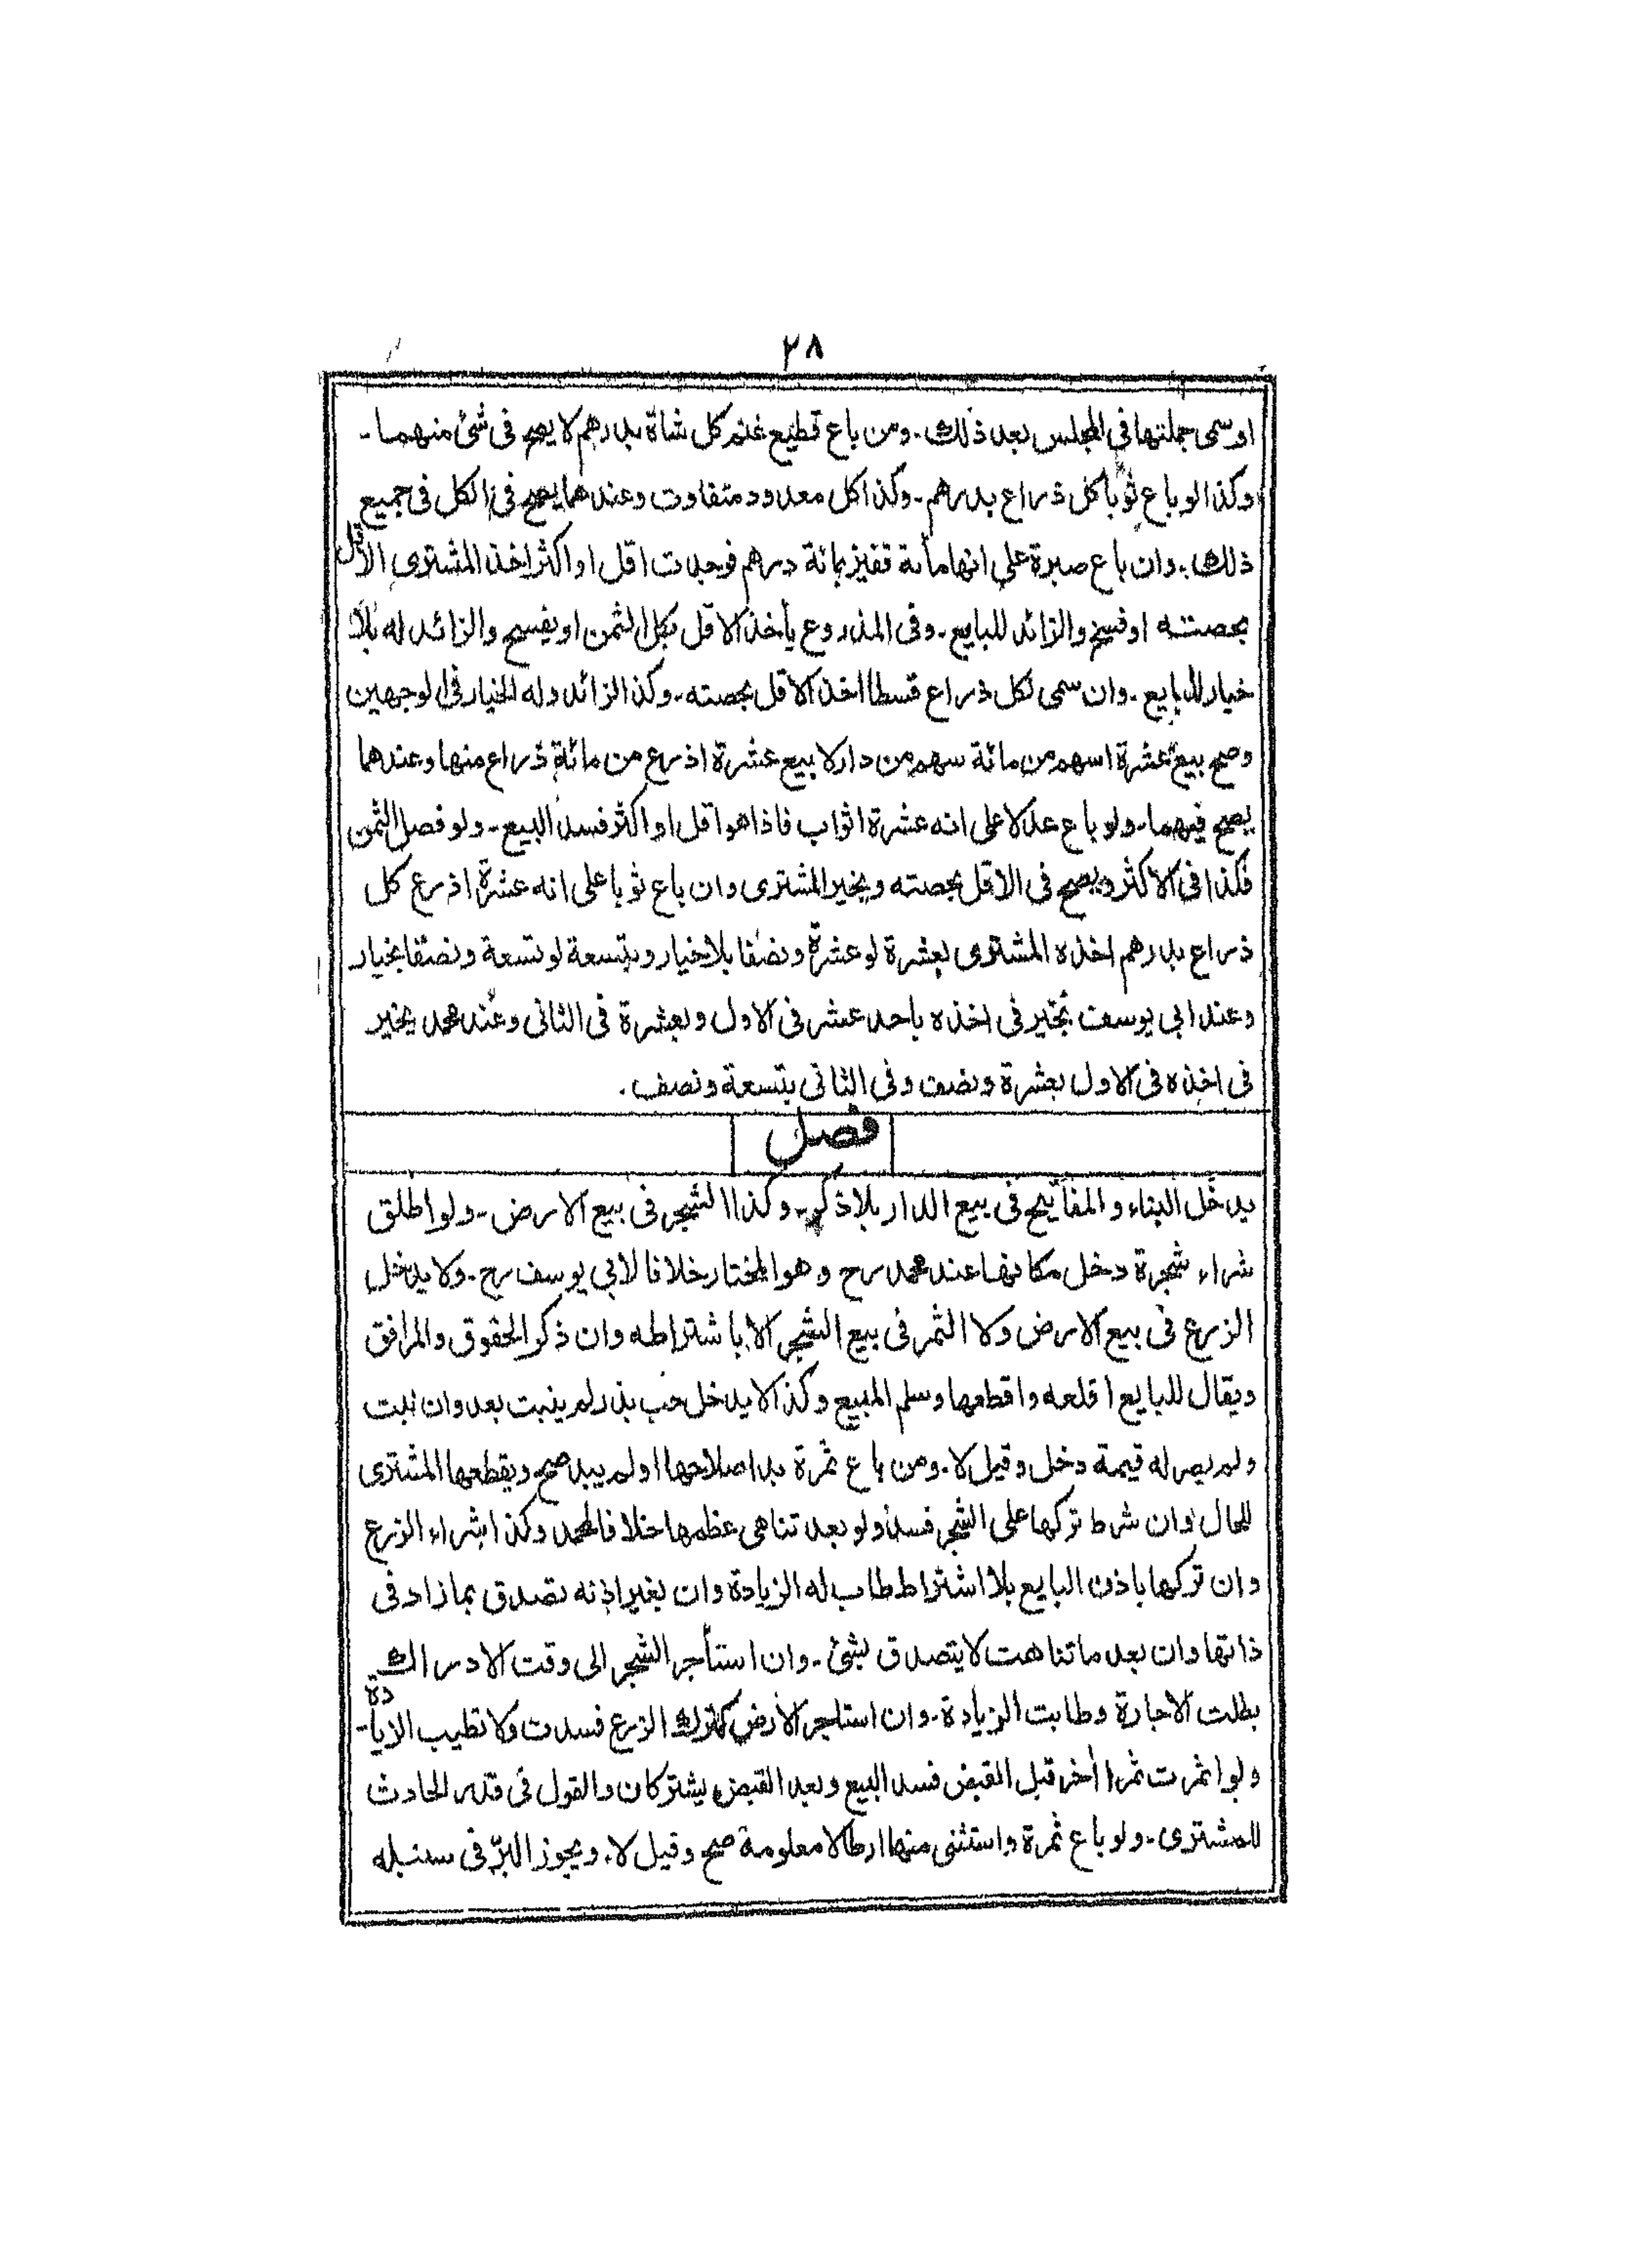 ٢٨
او سمى جملتها فى المجلس بعد ذلك۔ ومن باع قطيع غنم كل شاة بدرهم لا يصح فى شئ منهما۔
وكذا لو باع ثوبا كل ذراع بدرهم۔ وكذا كل معدود متفاوت وعندهما يصح فى الكل فى جميع
ذلك۔ وان باع صبرة على انها مأىة قفيز بمائة درهم فوجدت اقل او اكثر اخذ المشترى الاقل
بحصته او فسخ والزائد للبايع۔ وفى المذروع يأخذ الاقل بكل الثمن او يفسخ والزائد له بلا
خيار للبايع۔ وان سمى لكل ذراع قسطا اخذ الاقل بحصته۔ وكذا الزائد وله الخيار فى الوجهين
وصح بيع عشرة اسهم من مائة سهم من دار لا بيع عشرة اذرع من مائة ذراع منها وعندهما
يصح فيهما۔ ولو باع عدلا على انه عشرة اثواب فاذا هو اقل او اكثر فسد البيع۔ ولو فصل الثمن
فكذا فى الاكثر ويصح فى الاقل بحصته ويخير المشترى وان باع ثوبا على انه عشرة اذرع كل
ذراع بدرهم اخذه المشترى بعشرة لو عشرة ونصفا بلا خيار وبتسعة لو تسعة ونصفا بخيار
وعند ابى يوسف يخير فى اخذه باحد عشر فى الاول وبعشرة فى الثانى وعند محمد يخير
فى اخذه فى الاول بعشرة ونصف وفى الثانى بتسعة ونصف۔
فصل
يدخل البناء والمفاتيح فى بيع الدار بلا ذكر۔ وكذا الشجر فى بيع الارض۔ ولو اطلق
شراء شجرة دخل مكانها عند محمد رح وهو المختار خلافا لابى يوسف رح۔ ولا يدخل
الزرع فى بيع الارض ولا الثمر فى بيع الشجر الا باشتراطه وان ذكر الحقوق والمرافق
ويقال للبايع اقلعه واقطعها وسلم المبيع وكذا لا يدخل حب بذر لم ينبت بعد وان نبت
ولم يصر له قيمة دخل وقيل لا۔ ومن باع ثمرة بدا صلاحها او لم يبد صح ويقطعها المشترى
للحال وان شرط تركها على الشجر فسد ولو بعد تناهى عظمها خلافا لمحمد وكذا شراء الزرع
وان تركها باذن البايع بلا اشتراط طاب له الزيادة وان بغير اذنه تصدق بما زاد فى
ذاتها وان بعد ما تناهت لا يتصدق بشئ۔ وان استأجر الشجر الى وقت الادراك
بطلت الاجارة وطابت الزيادة۔ وان استاجر الارض لترك الزرع فسدت ولا تطيب الزيادة۔
ولو اثمرت ثمرا أخر قبل القبض فسد البيع وبعد القبض يشتركان والقول فى قدر الحادث
للمشترى۔ ولو باع ثمرة واستثنى منها ارطالا معلومة صح وقيل لا۔ ويجوز البرّ فى سنبله